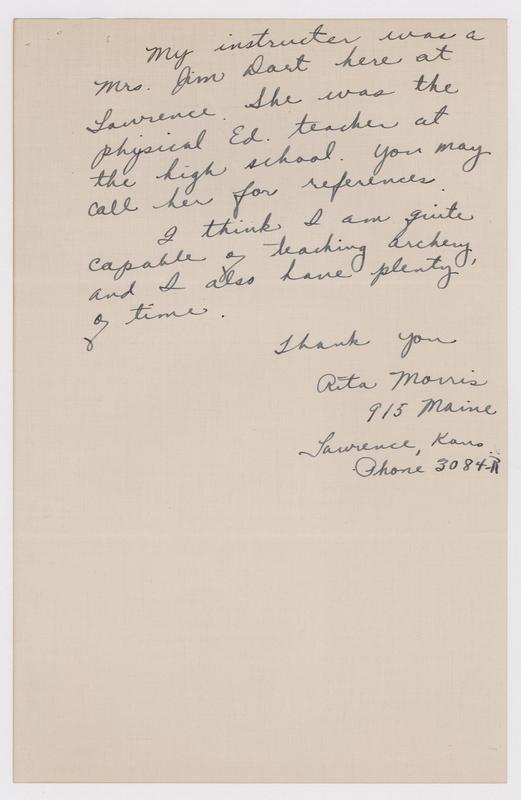 My instructer was a
Mrs. Jim Dart here at
Lawrence. She was the
physical Ed. teacher at
the high school. You may
call her for references.
I think I am quite
capable of teaching archery,
and I also have plenty
of time.
Thank you
Rita Morris
915 Maine
Lawrence, Kans.
Phone 3084-R